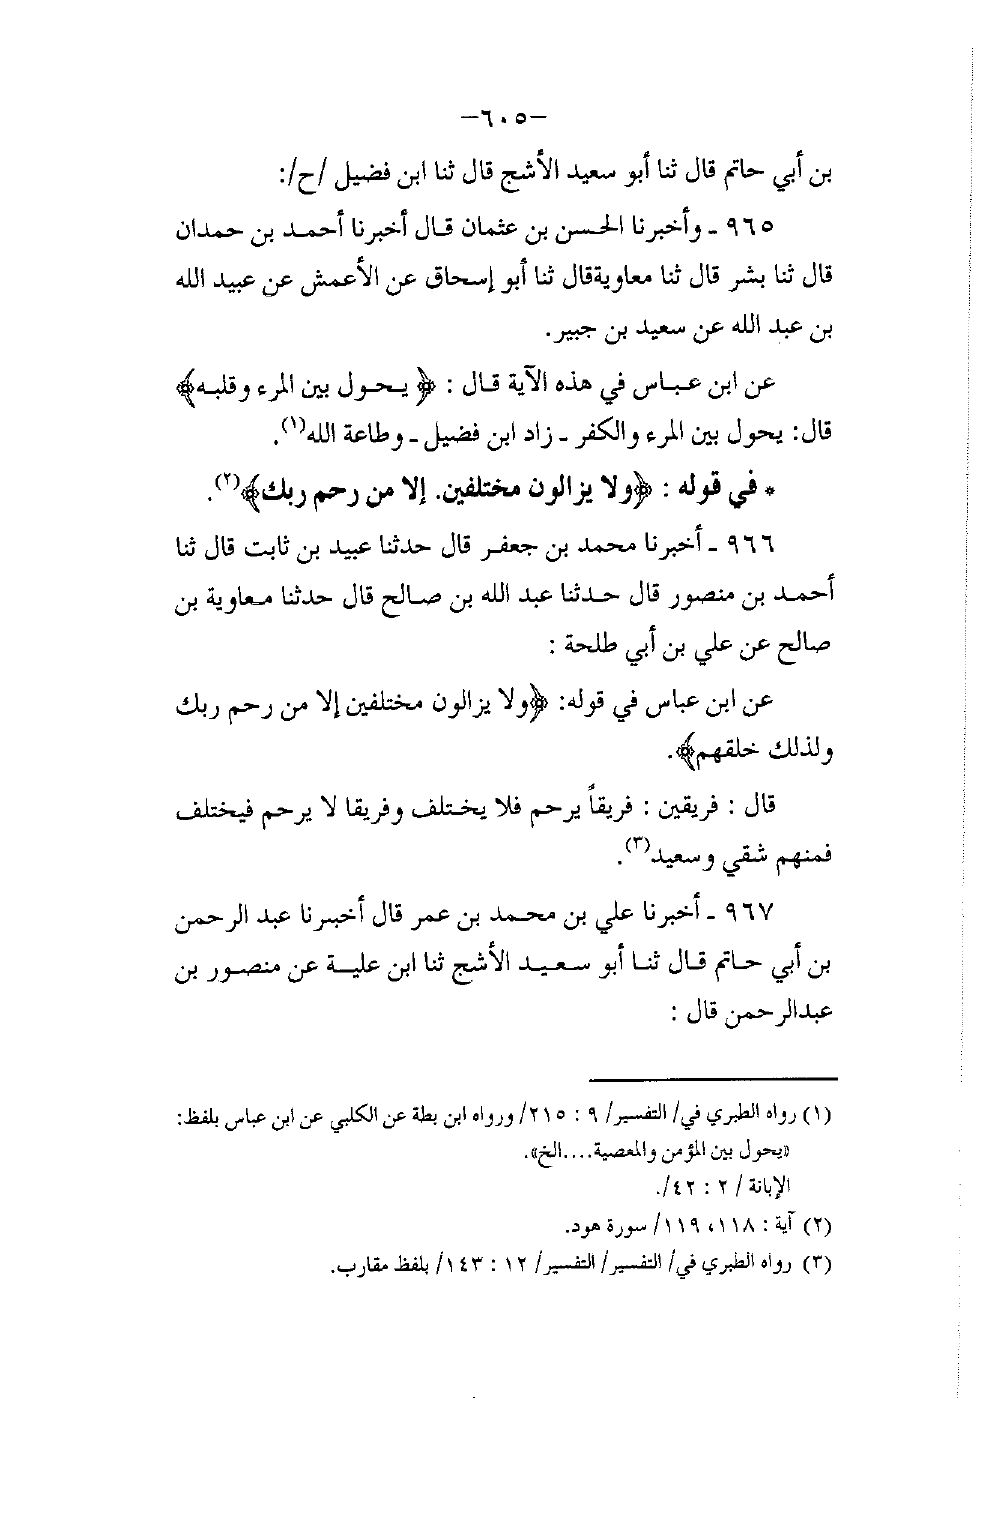 —٦٠٥—
بن أبي حاتم قال ثنا أبو سعيد الأشج قال ثنا ابن فضيل /ح/:
٩٦٥ ـ وأخبرنا الحسن بن عثمان قال أخبرنا أحمد بن حمدان
قال ثنا بشر قال ثنا معاويةقال ثنا أبو إسحاق عن الأعمش عن عبيد الله
بن عبد الله عن سعيد بن جبير.
عن ابن عباس في هذه الآية قال : ﴿ يحول بين المرء وقلبه﴾
قال: يحول بين المرء والكفر ـ زاد ابن فضيل ـ وطاعة الله(١).
* في قوله : ﴿ولا يزالون مختلفين. إلا من رحم ربك﴾(٢).
٩٦٦ ـ أخبرنا محمد بن جعفر قال حدثنا عبيد بن ثابت قال ثنا
أحمد بن منصور قال حدثنا عبد الله بن صالح قال حدثنا معاوية بن
صالح عن علي بن أبي طلحة :
عن ابن عباس في قوله: ﴿ولا يزالون مختلفين إلا من رحم ربك
ولذلك خلقهم﴾.
قال : فريقين : فريقاً يرحم فلا يختلف وفريقا لا يرحم فيختلف
فمنهم شقي وسعيد(٣).
٩٦٧ ـ أخبرنا علي بن محمد بن عمر قال أخبرنا عبد الرحمن
بن أبي حاتم قال ثنا أبو سعيد الأشج ثنا ابن علية عن منصور بن
عبدالرحمن قال :
(١) رواه الطبري في/ التفسير/ ٩ : ٢١٥/ ورواه ابن بطة عن الكلبي عن ابن عباس بلفظ:
«يحول بين المؤمن والمعصية....الخ».
الإبانة / ٢ : ٤٢/.
(٢) آية : ١١٨، ١١٩/ سورة هود.
(٣) رواه الطبري في/ التفسير/ التفسير/ ١٢ : ١٤٣/ بلفظ مقارب.